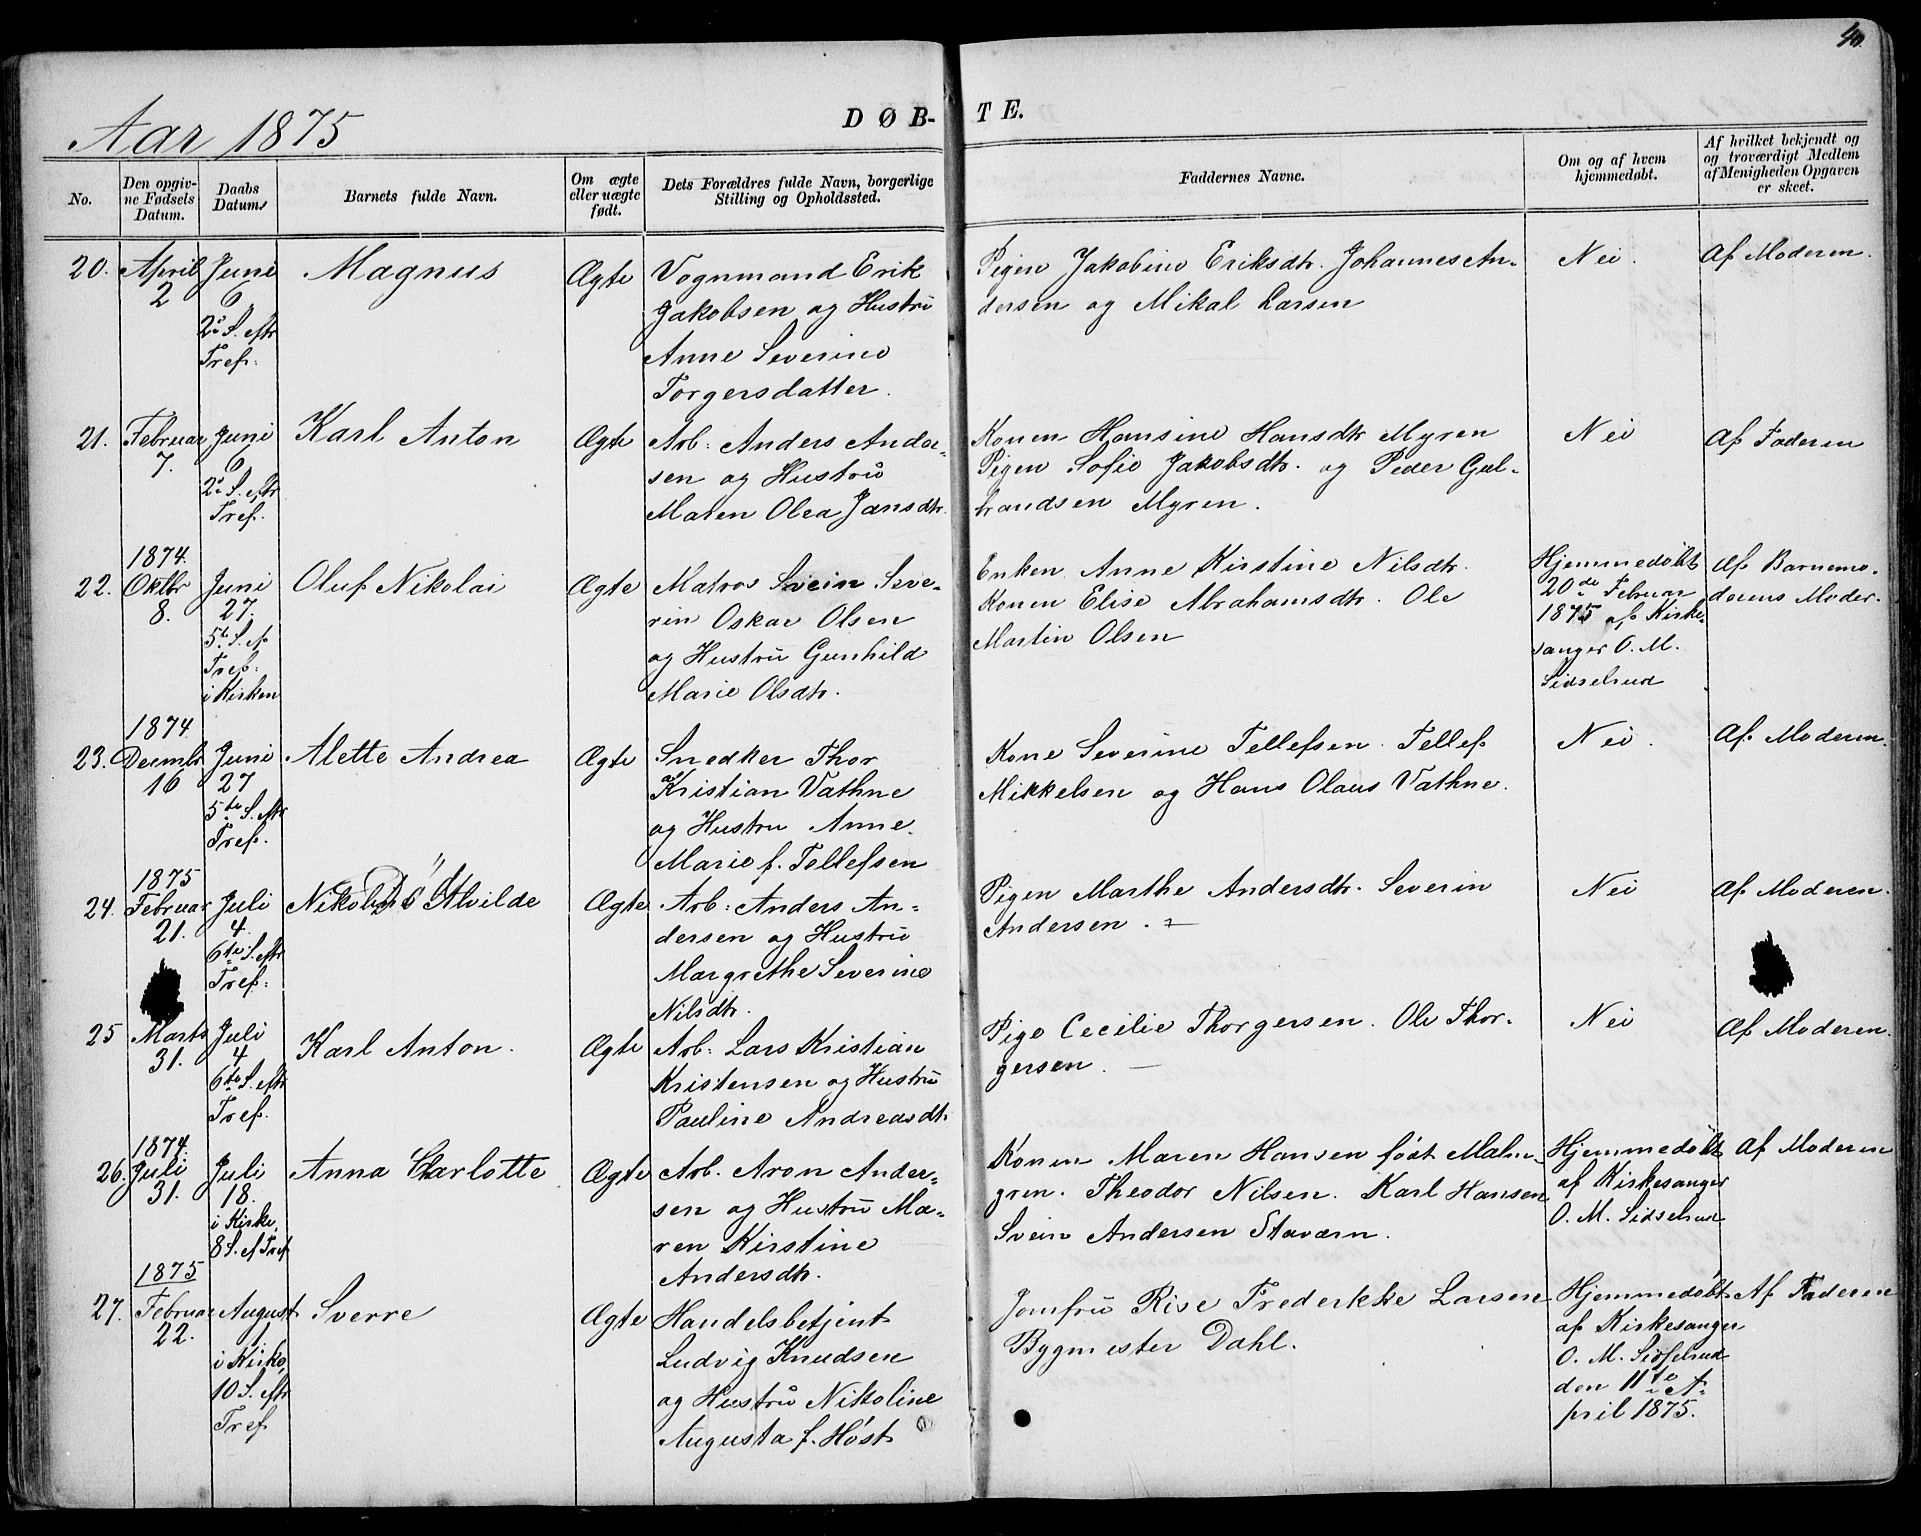 40.
Aar 1875
DØB-
TE.
No.
Den opgiv-
ne Fødsels
Datum.
Daabs
Datum.
Barnets fulde Navn.
Om ægte
eller uægte
født.
Dets Forældres fulde Navn, borgerlige
Stilling og Opholdssted.
Faddernes Navne.
Om og af hvem
hjemmedøbt.
Af hvilket bekjendt og
og troværdigt Medlem
af Menigheden Opgaven
er skeet.
20.
April
2
Juni
6
2de S. eftr
Tref:
Magnus
Ægte
Vognmand Erik
Jakobsen og Hustru
Anne Severine
Torgersdatter.
Pigen Jakobine Eriksdtr. Johannes An-
dersen og Mikal Larsen
Nei.
Af Moderen.
21.
Februar
7.
Juni
6
2de S. eftr
Tref.
Karl Anton
Ægte
Arb: Anders Ander-
sen og Hustru
Maren Olea Jansdtr.
Konen Hansine Hansdtr Myren
Pigen Sofie Jakobsdtr. og Peder Gul-
brandsen Myren.
Nei
Af Faderen
1874.
22.
Oktbr
8.
Juni
27.
5te S. ef
Tref:
i Kirken
Oluf Nikolai
Ægte
Matros Svein Seve-
rin Oskar Olsen
og Hustru Gunhild
Marie Olsdtr.
Enken Anne Kirstine Nilsdtr.
Konen Elise Abrahamsdtr. Ole
Martin Olsen
Hjemmedøbt
20de Februar
1875 af Kirke-
sanger O. M.
Sidselrud
Af Barnemo-
derens Moder.
1874.
23.
Decmbr
16
Juni
27
5te S. eftr
Tref.
Alette Andrea
Ægte
Snedker Thor
Kristian Vathne
og Hustru Anne
Marie f. Tellefsen
Kone Severine Tellefsen. Tellef
Mikkelsen og Hans Olaus Vathne.
Nei.
Af Moderen.
1875
24.
Februar
21.
Juli
4.
6te S. eftr
Tref:
Alvilde
Ægte
Arb: Anders An-
dersen og Hustru
Margrethe Severine
Nilsdtr.
Pigen Marthe Andersdtr. Severin
Andersen.
Nei
Af Moderen.
25
Marts
31.
Juli
4
6te S. eftr
Tref.
Karl Anton.
Ægte
Arb: Lars Kristian
Kristensen og Hustru
Pauline Andreasdtr.
Pige Cecilie Thorgersen. Ole Thor-
gersen.
Nei
Af Moderen.
1874.
26.
Juli
31.
Juli
18.
i Kirke,
8 S. ef Tref
Anna Charlotte
Ægte
Arb. Aron Ander-
sen og Hustru Ma-
ren Kirstine
Andersdtr.
Konen Maren Hansen født Malm-
gren. Theodor Nilsen. Karl Hansen
Svein Andersen Staværn.
Hjemmedøbt
af Kirkesanger
O. M. Sidselrud
Af Moderen
1875
27.
Februar
22.
August
1.
i Kirke,
10 S. eftr
Tref
Sverre
Ægte
Handelsbetjent
Ludvig Knudsen
og Hustru Nikoline
Augusta f. Høst
Jomfru Rise Frederikke Larsen
Bygmester Dahl.
Hjemmedøbt
af Kirkesanger
O. M. Sidselrud
den 11te A-
pril 1875.
Af Faderen